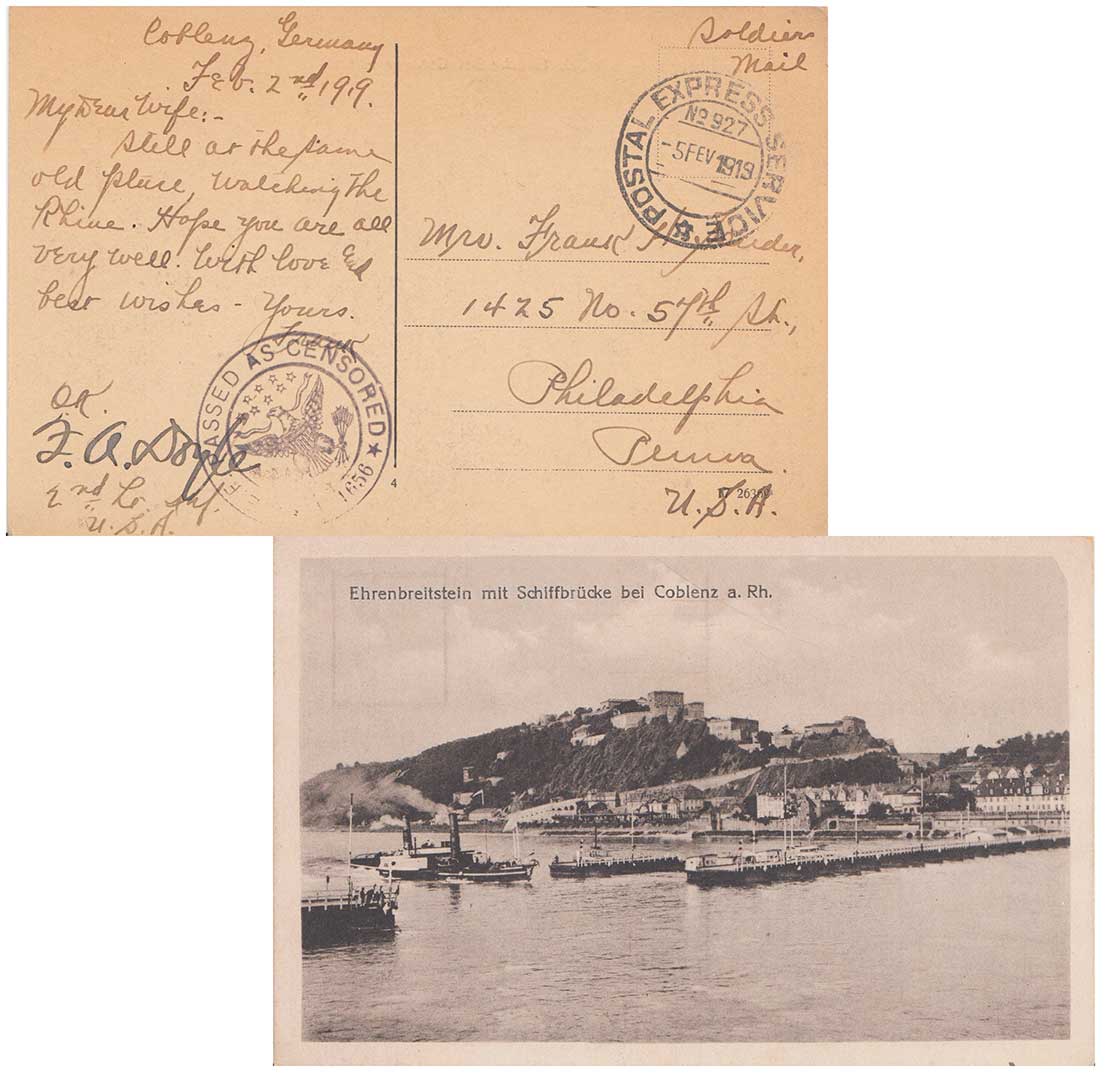 Coblenz, Germany
Feb. 2nd, 1919.
My Dear Wife:-
Still at the same
old place, watching the
Rhine. Hope you are all
very well. With love and
best wishes - Yours.
Frank
O.K.
F. A. Doyle
2nd Lt. Inf.
U.S.A.
PASSED AS CENSORED
1656
4
Soldiers
Mail
POSTAL EXPRESS SERVICE
No 927
-5 FEV 1919
Mrs. Frank
1425 No. 57th St.,
Philadelphia
Penna.
U.S.A.
Ehrenbreitstein mit Schiffbrücke bei Coblenz a. Rh.